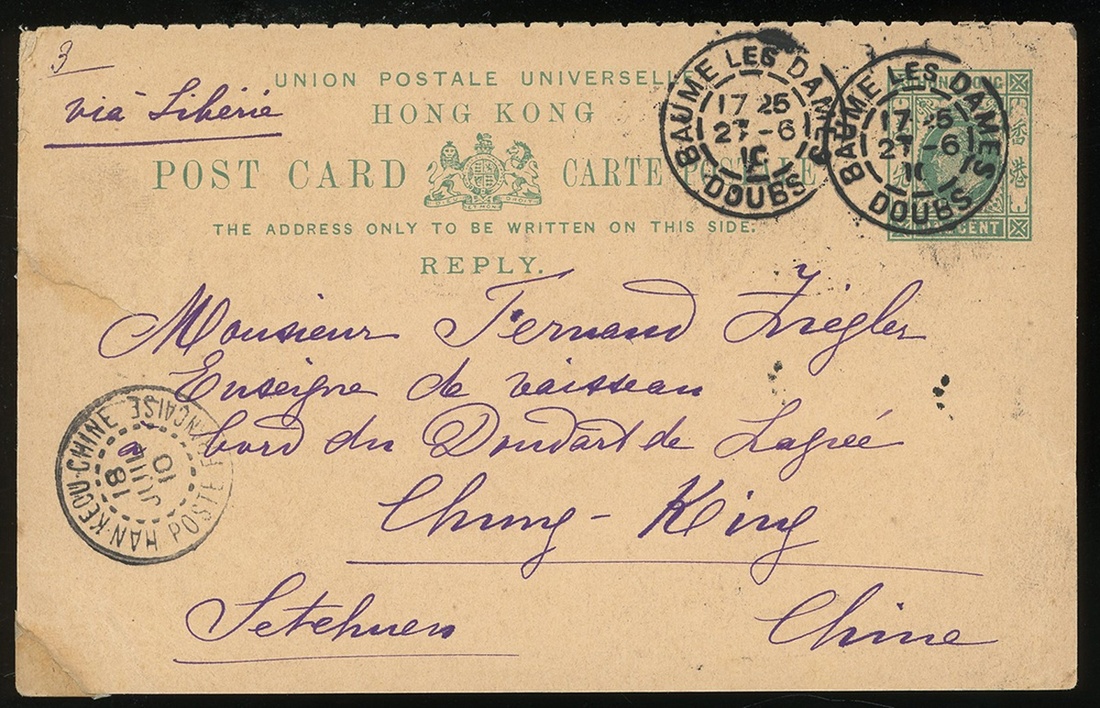 3
via Sibérie
UNION POSTALE UNIVERSELLE
HONG KONG
POST CARD CARTE POSTALE
DIEU ET MON DROIT
THE ADDRESS ONLY TO BE WRITTEN ON THIS SIDE.
REPLY.
BAUME LES DAMES
17 25
27 - 6
10
DOUBS
BAUME LES DAMES
17 25
27 - 6
10
DOUBS
HONG KONG
香港
CENT
Monsieur Fernand Ziegler
Enseigne de vaisseau
à bord du Doudart de Lagrée
Chung-King
Setchuen Chine
HAN-KEOU-CHINE
POSTE FRANÇAISE
18
JUIL
10